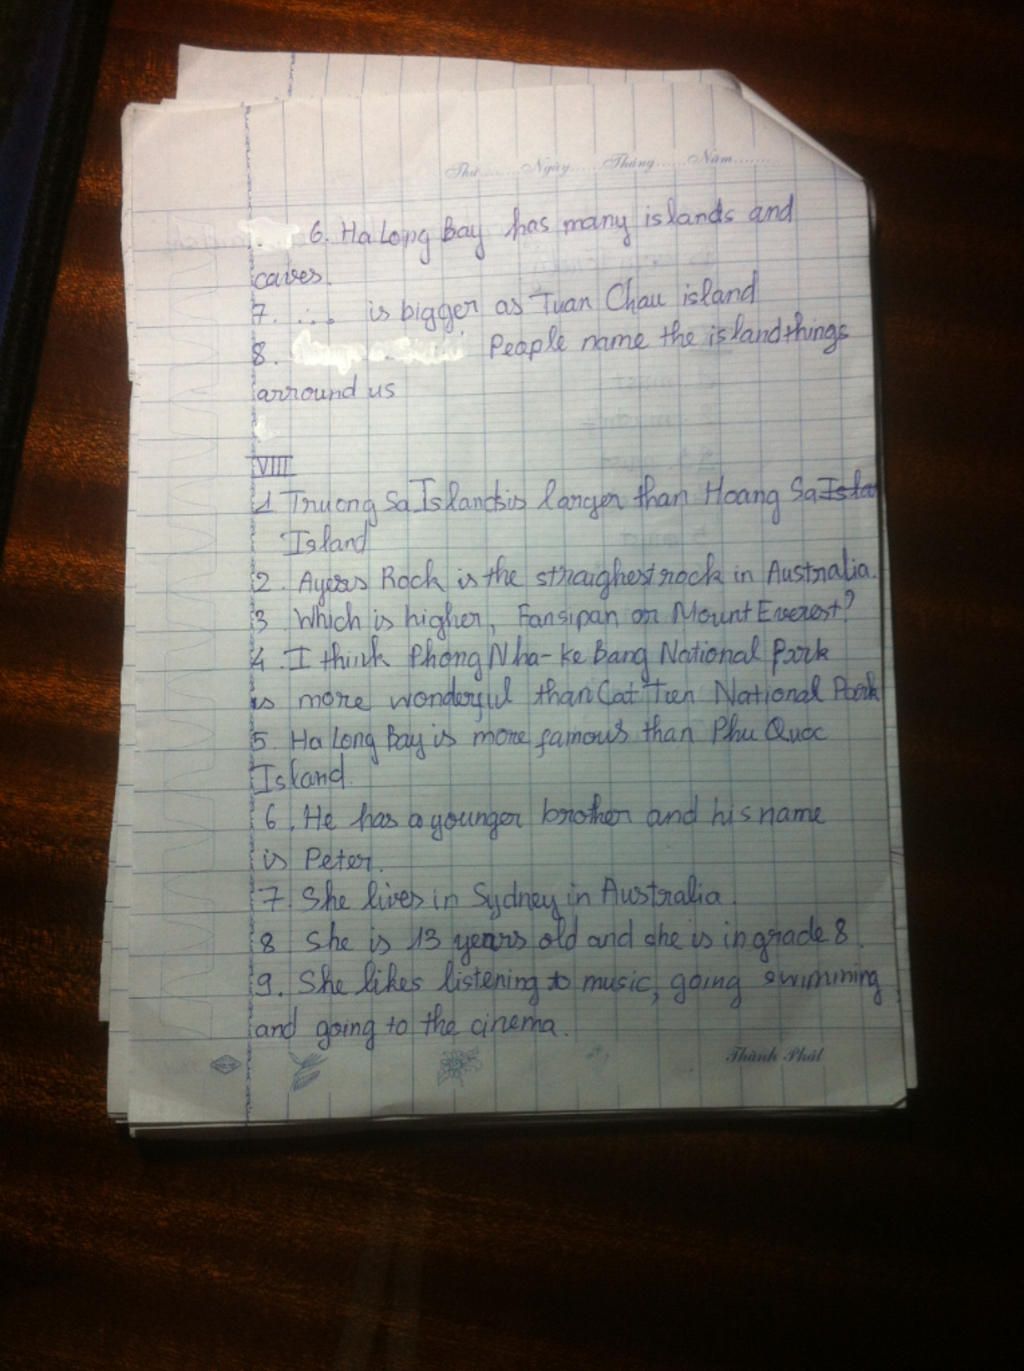 Thứ......Ngày......Tháng......Năm........
6. Ha Long Bay has many islands and
caves.
7. ... is bigger as Tuan Chau island
8. People name the island things
arround us
VIII
1 Truong Sa Islands is larger than Hoang Sa Isla
Island
2. Ayers Rock is the straighest rock in Australia.
3 Which is higher, Fansipan or Mount Everest?
4. I think Phong Nha-ke Bang National Park
is more wonderful than Cat Tien National Park
5. Ha Long Bay is more famous than Phu Quoc
Island.
6. He has a younger brother and his name
is Peter.
7. She lives in Sydney in Australia.
8 She is 13 years old and she is in grade 8.
9. She likes listening to music, going swimming
and going to the cinema.
Thành Phát